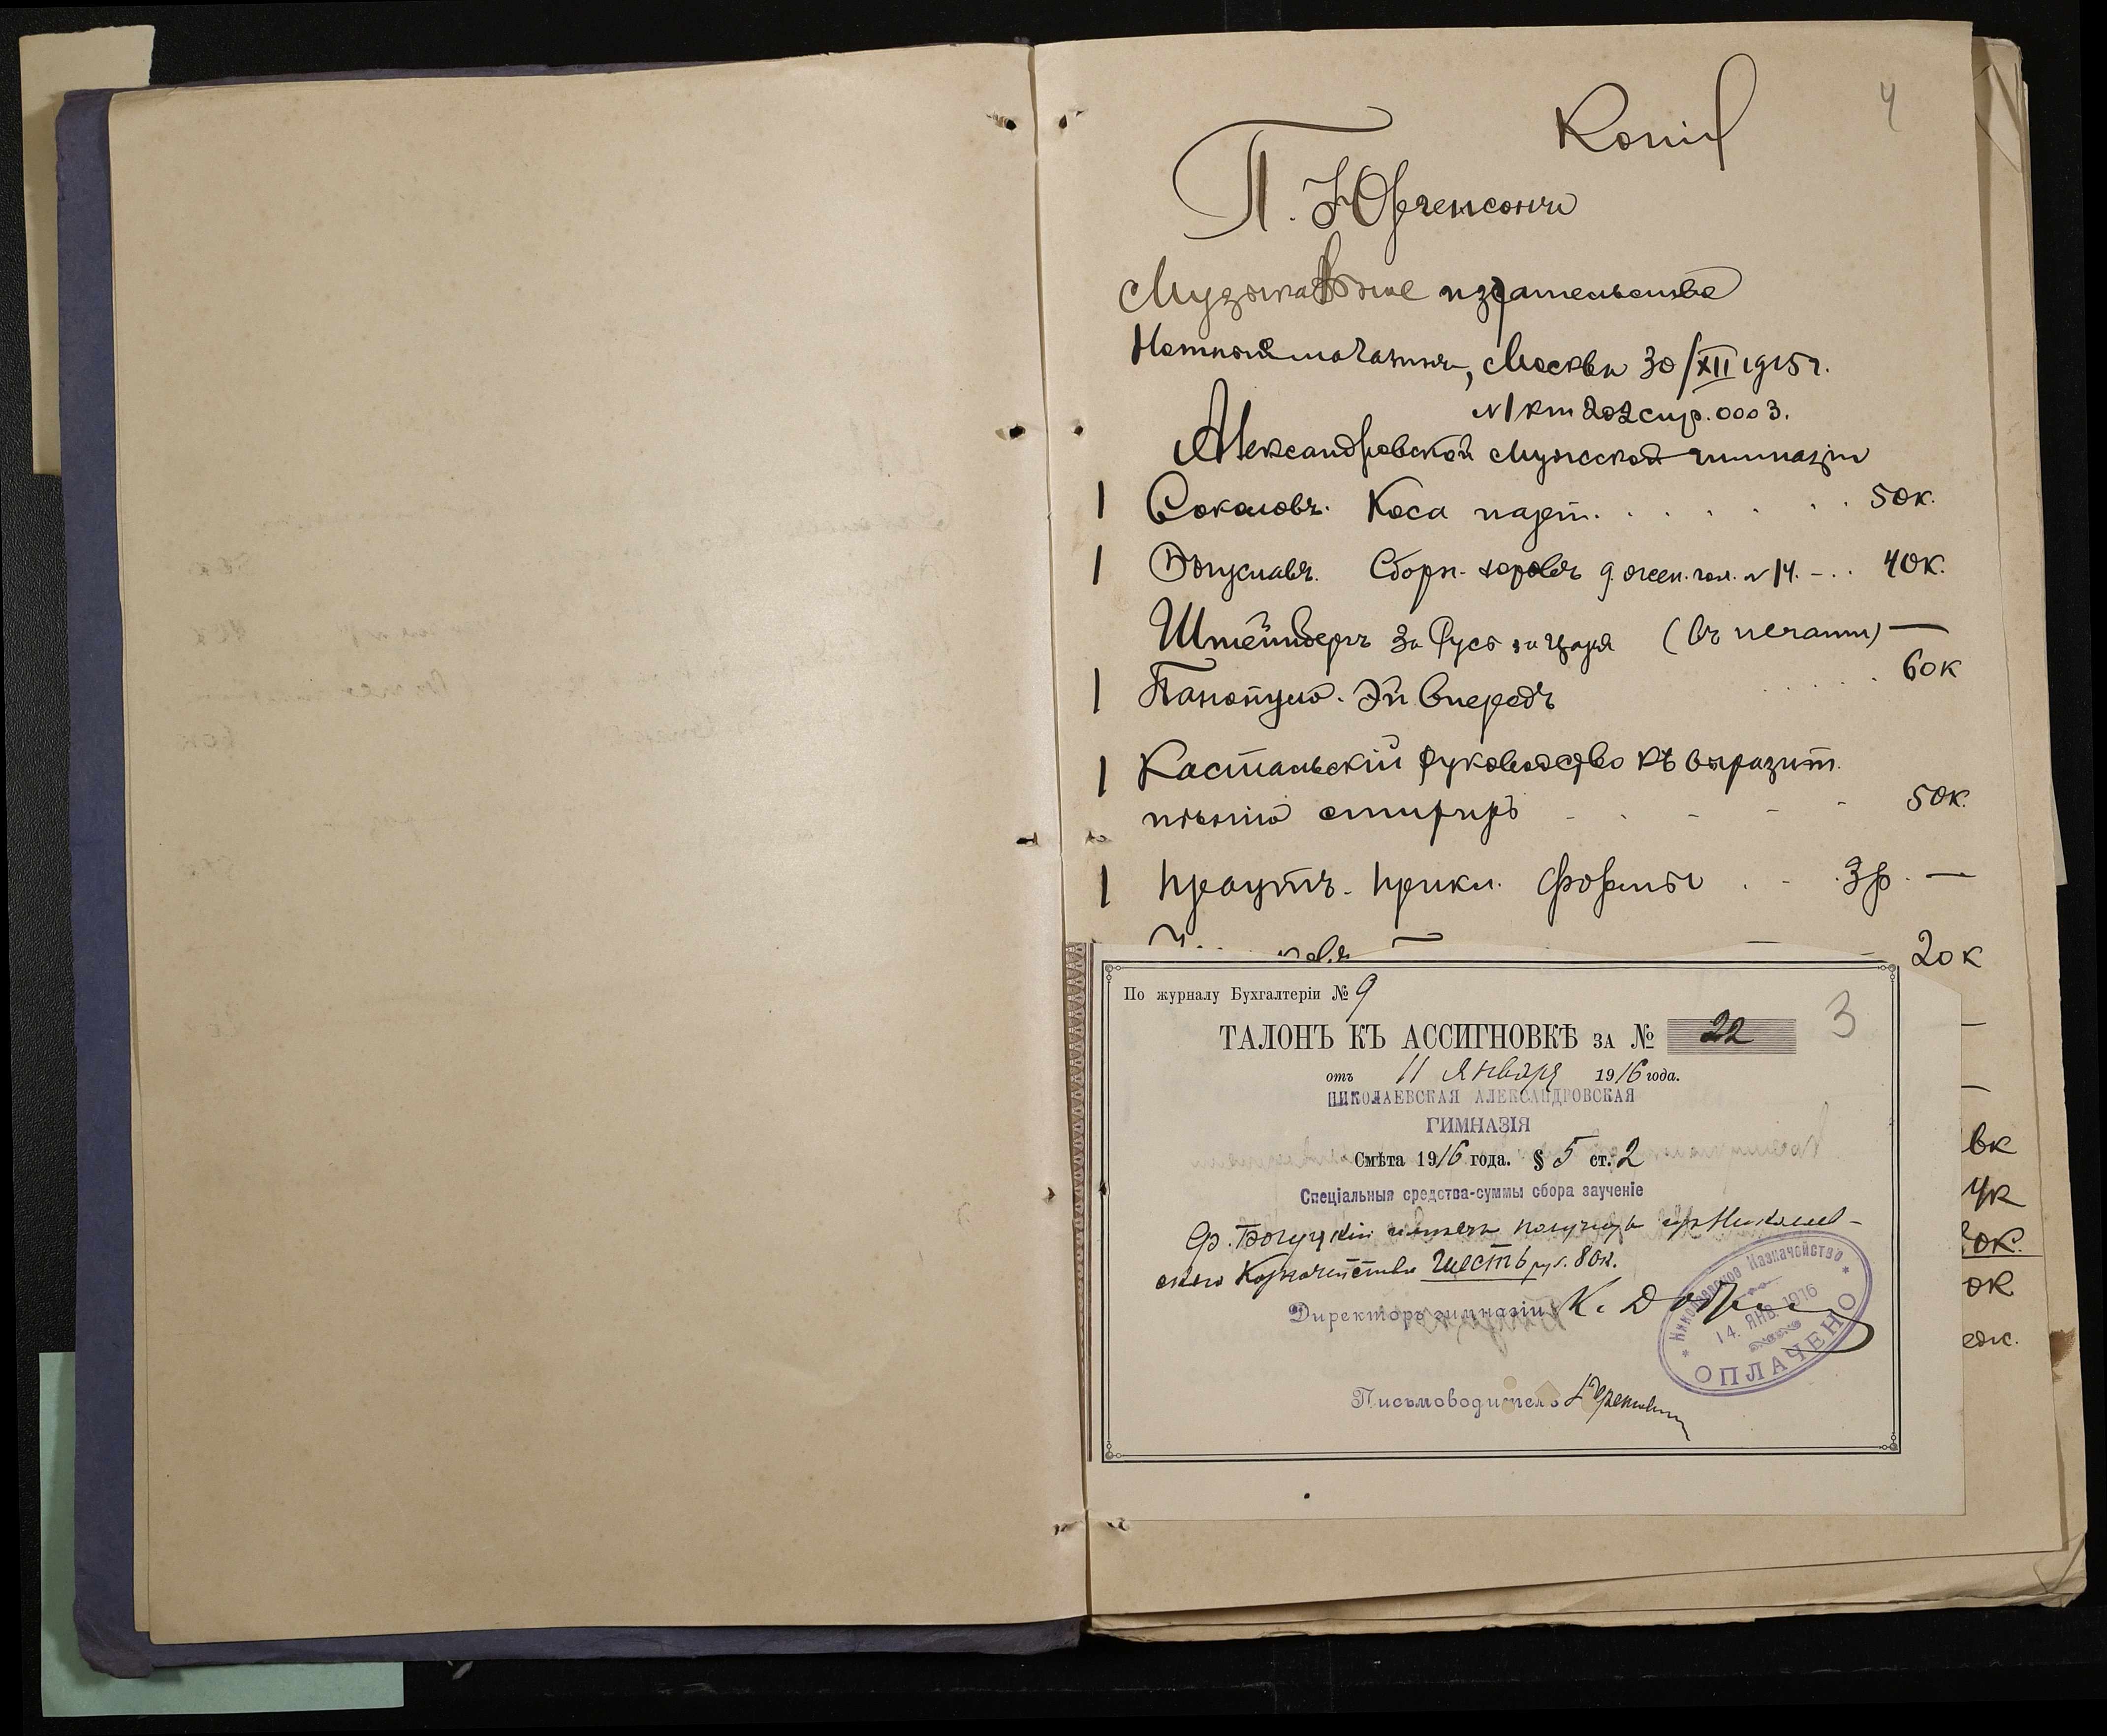 4
Копія
П. Юргенсонъ
Музыкальное издательство
Москва 30/XII 1915 г.
Александровской мужской гимназіи
1 Соколовъ. Коса парт. . . . . . . 50к.
1 Богуславъ. Сборн. хоровъ № 14. - . . 40к.
Штейнберъ За Русь за Царя (въ печати) —
1 Панопуло. Эй впередъ . . . . . 60к
1 Кастальскій руководство къ выразит.
пѣнію стихиръ - . - - - 50к.
1 Праутъ. Прикл. формы . - . 3р. —
20к
По журналу Бухгалтеріи № 9
3
ТАЛОНЪ КЪ АССИГНОВКѢ ЗА № 22
отъ 11 Января 1916 года.
НИКОЛАЕВСКАЯ АЛЕКСАНДРОВСКАЯ
ГИМНАЗІЯ
Смѣта 1916 года. § 5 ст. 2
Спеціальныя средства-суммы сбора заученіе
получить изъ Николаев-
скаго Казначейства Шесть ру. 80к.
Директоръ гимназіи К.
Николаевское Казначейство
14. ЯНВ. 1916
ОПЛАЧЕНО
Письмоводитель
вк
4к
ок.
ок